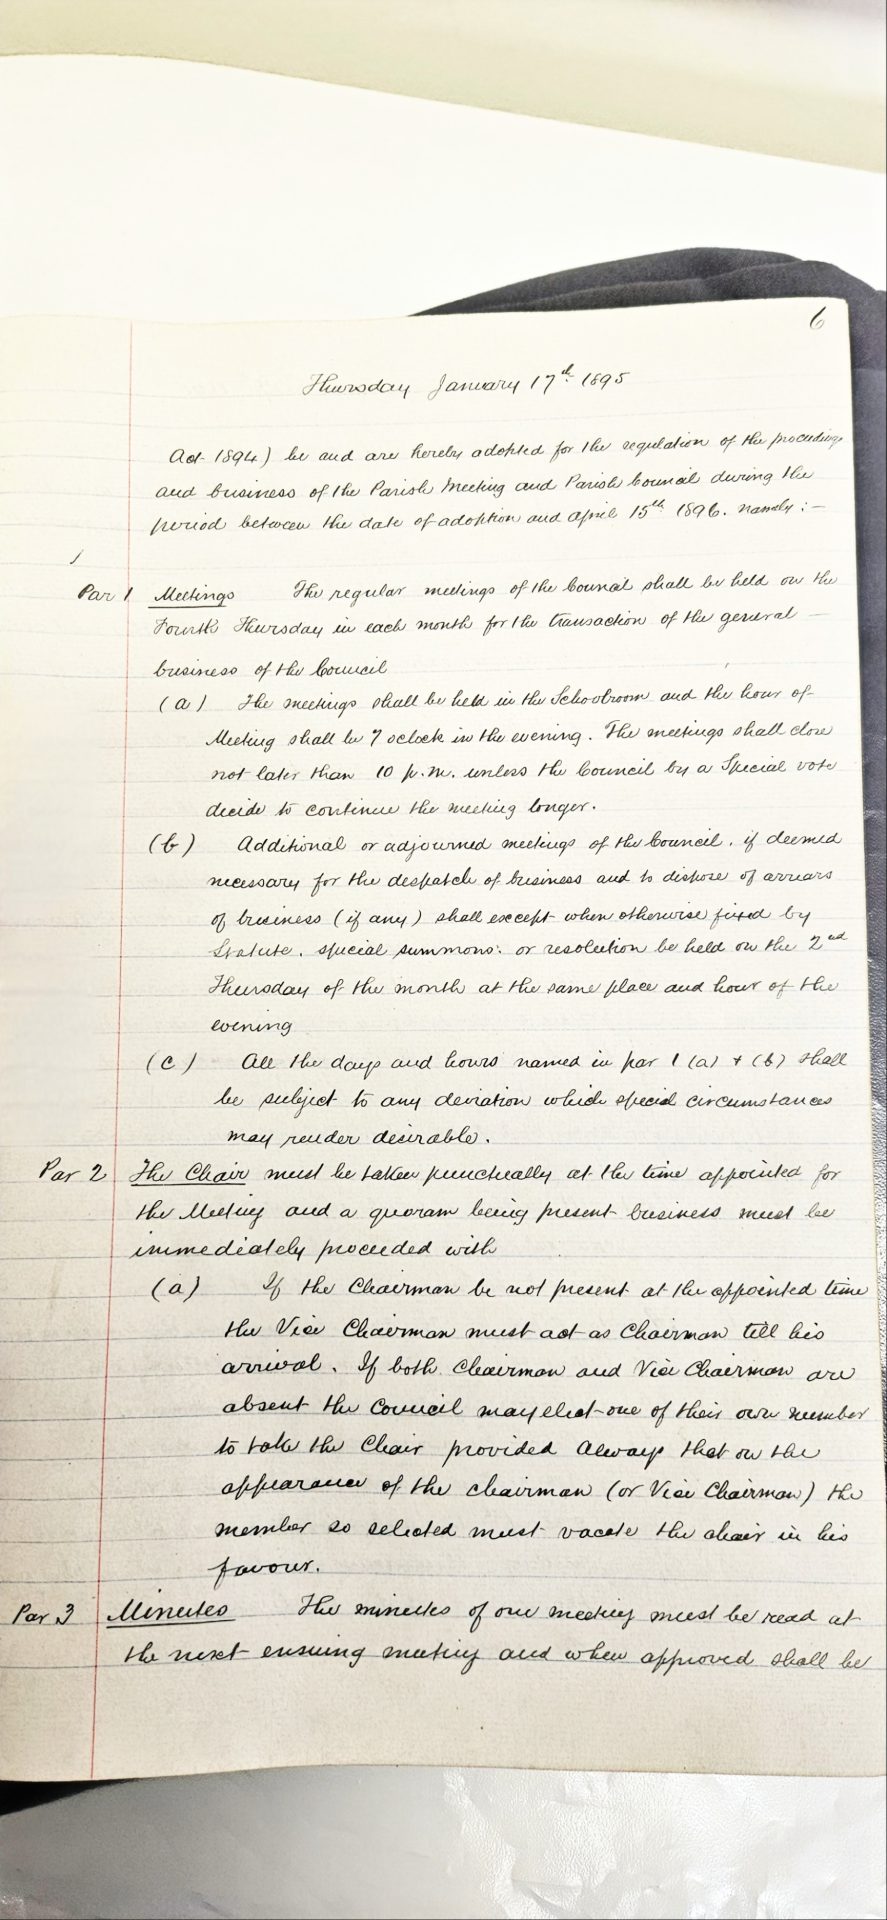 6
Thursday January 17th 1895
Act 1894) be and are hereby adopted for the regulation of the proceedings
and business of the Parish Meeting and Parish Council during the
period between the date of adoption and April 15th 1896. namely :-
Par 1 Meetings The regular meetings of the Council shall be held on the
Fourth Thursday in each month for the transaction of the general
business of the Council
(a) The meetings shall be held in the Schoolroom and the hour of
Meeting shall be 7 oclock in the evening. The meetings shall close
not later than 10 p.m. unless the Council by a Special vote
decide to continue the meeting longer.
(b) Additional or adjourned meetings of the Council, if deemed
necessary for the despatch of business and to dispose of arrears
of business (if any) shall except when otherwise fixed by
Statute, special summons: or resolution be held on the 2nd
Thursday of the month at the same place and hour of the
evening
(c) All the days and hours named in par 1 (a) + (b) shall
be subject to any deviation which special circumstances
may render desirable.
Par 2 The Chair must be taken punctually at the time appointed for
the Meeting and a quoram being present business must be
immediately proceeded with
(a) If the Chairman be not present at the appointed time
the Vice Chairman must act as Chairman till his
arrival. If both Chairman and Vice Chairman are
absent the Council may elect one of their own number
to take the Chair provided always that on the
appearance of the chairman (or Vice Chairman) the
member so selected must vacate the chair in his
favour.
Par 3 Minutes The minutes of one meeting must be read at
the next ensuing meeting and when approved shall be